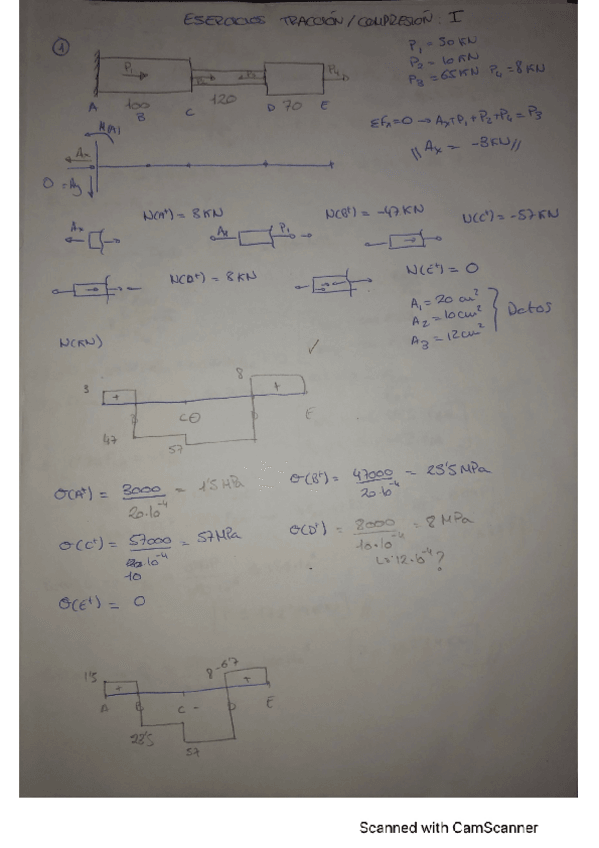 EJERCICIOS TRACCIÓN/COMPRESIÓN: I
①
P₁ = 50 KN
P₂ = 10 KN
P₃ = 65 KN P₄ = 8 KN
P₁ P₄
A 100 B C 120 D 70 E
ΣFx = 0 → Ax + P₁ + P₂ + P₄ = P₃
Ax = -3KN //
N(A)
Ax
0 = Ay
N(A⁺) = 3 KN
N(B⁺) = -47 KN
N(C⁺) = -57 KN
Ax
Ax P₁
N(D⁺) = 8 KN
N(E⁺) = 0
A₁ = 20 cm²
A₂ = 10 cm²
A₃ = 12 cm²
Datos
N(KN)
3 + 8 +
B C ⊖ D E
47
57
σ(A⁺) = 3000 / 20·10⁻⁴ = 1'5 MPa
σ(B⁺) = 47000 / 20·10⁻⁴ = 23'5 MPa
σ(C⁺) = 57000 / 20·10⁻⁴ = 57 MPa
10
σ(D⁺) = 8000 / 10·10⁻⁴ = 8 MPa
12·10⁻⁴?
σ(E⁺) = 0
1'5 + 8-6'7 +
A B C - D E
23'5
57
Scanned with CamScanner